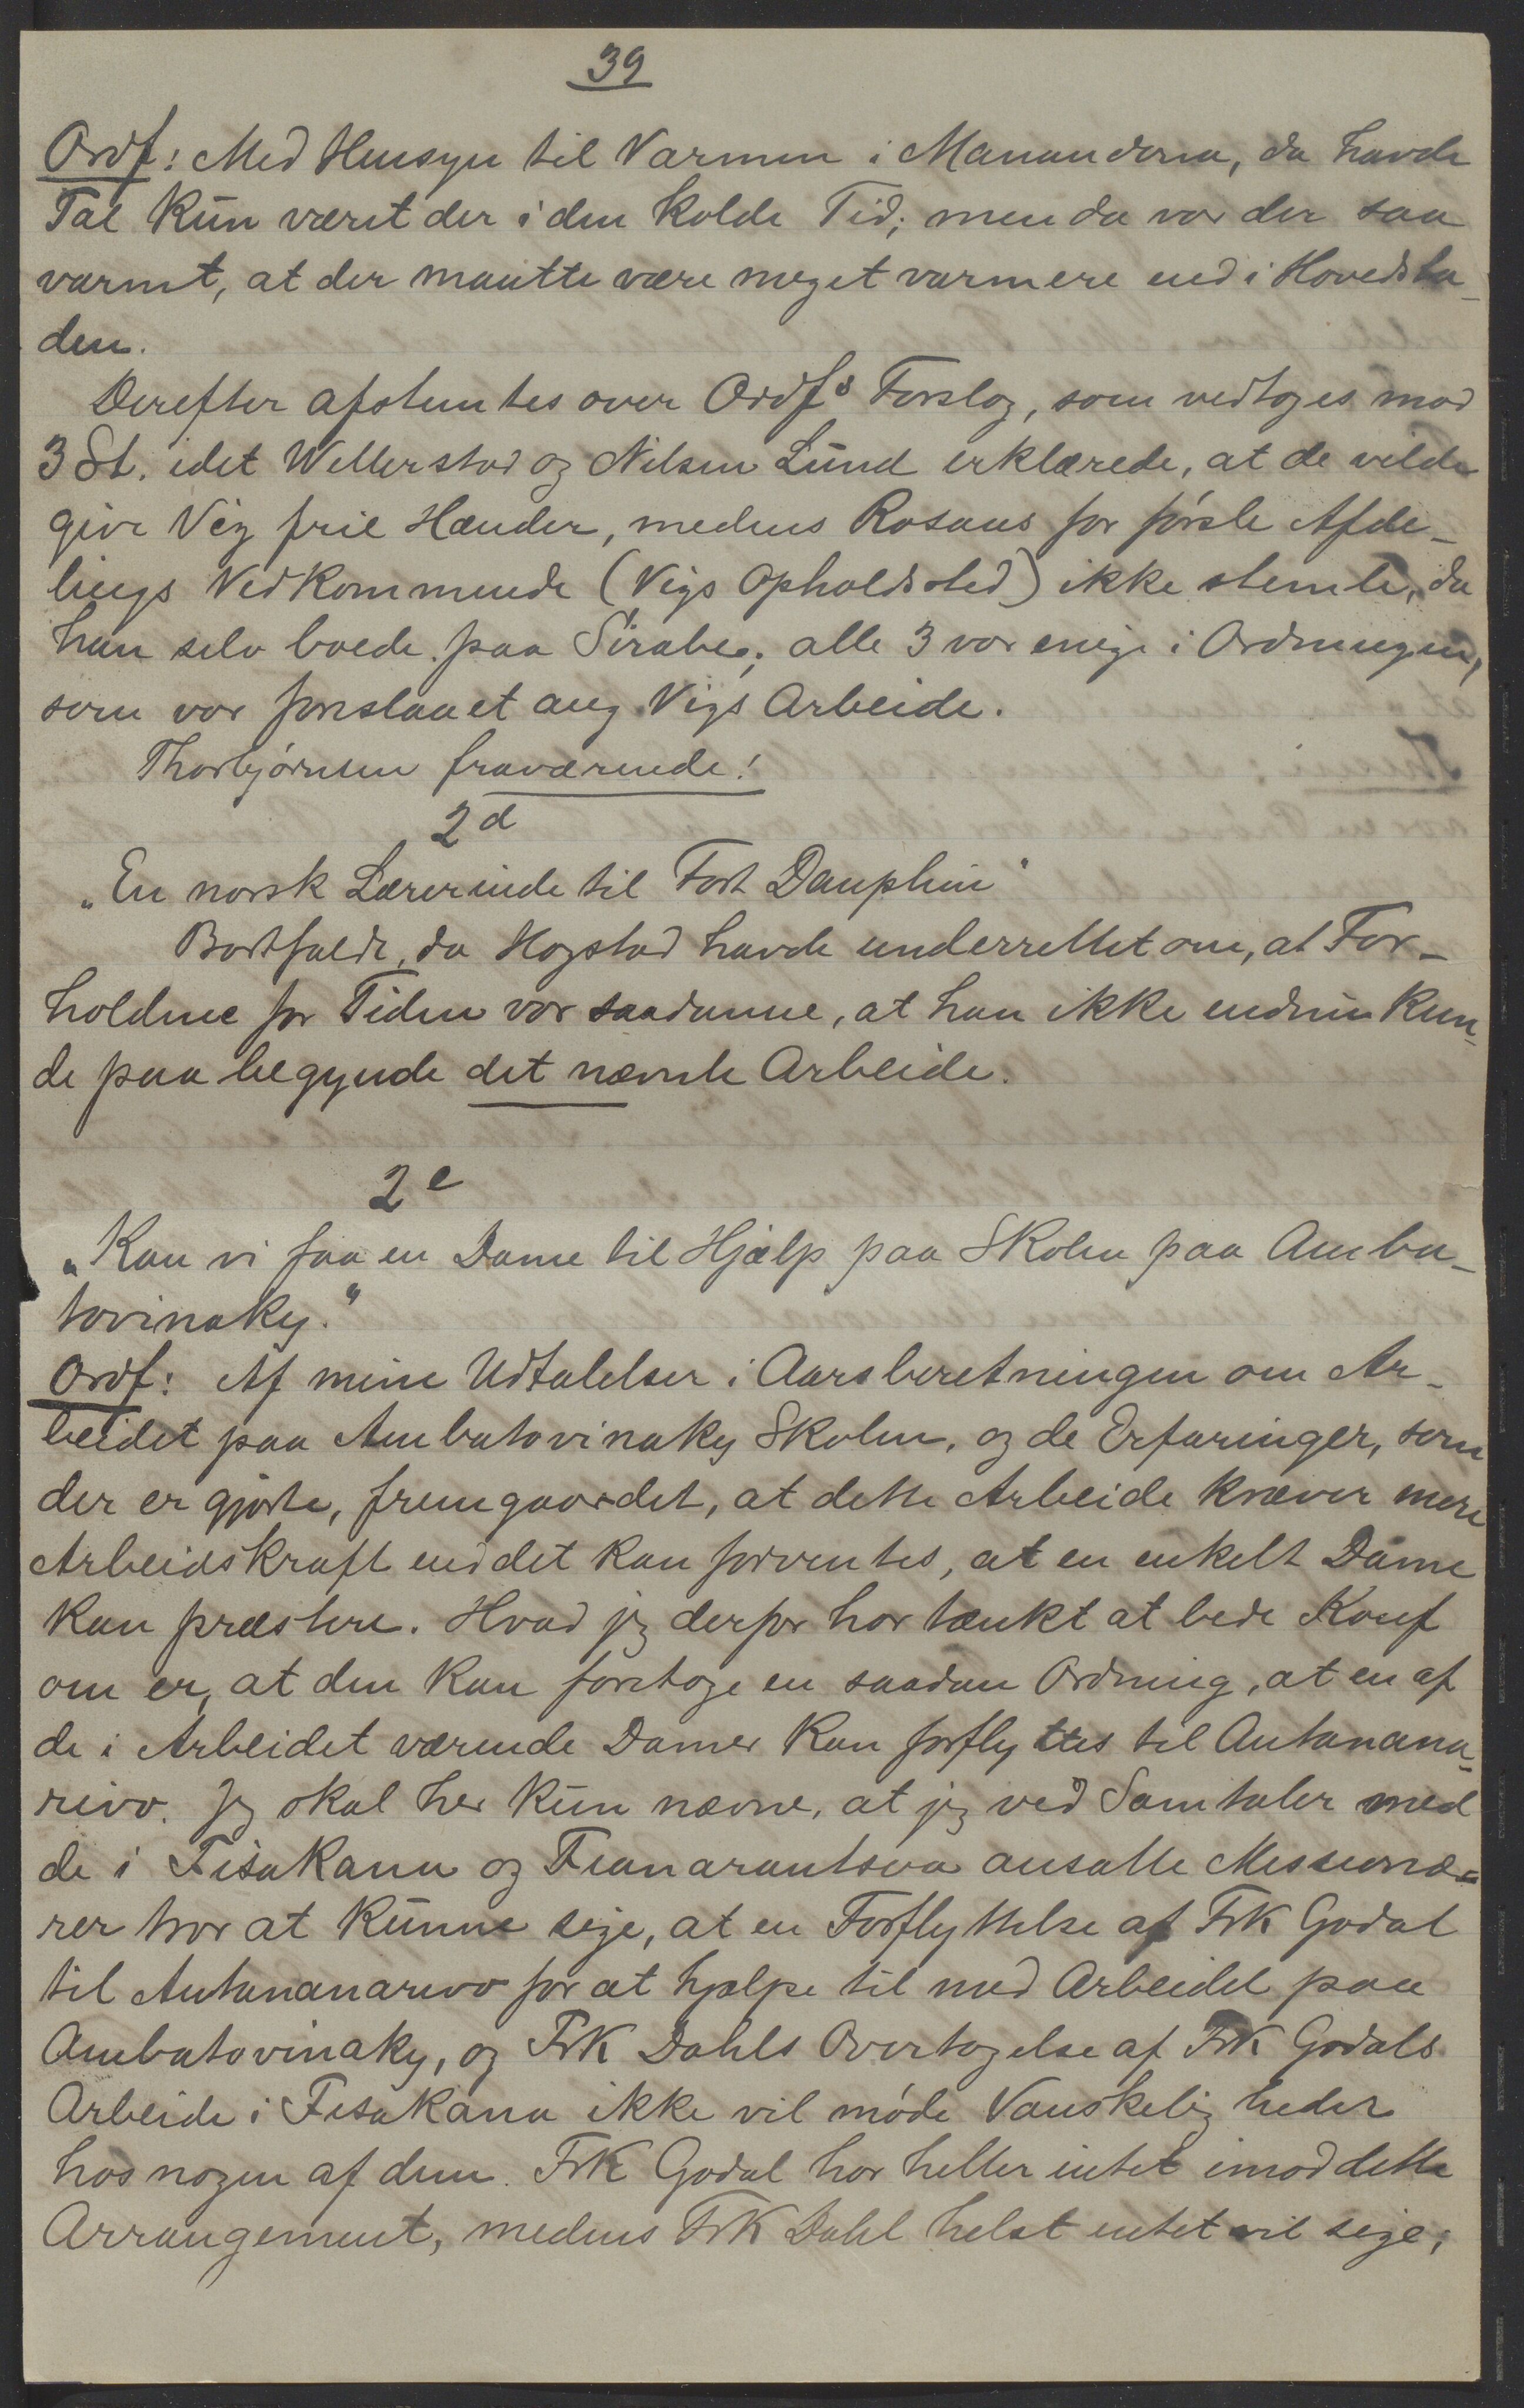 39
Ordf: Med Hensyn til Varmen i Manandona, da havde
Tal kun været der i den kolde Tid; men da var der saa
varmt, at der maatte være meget varmere end i Hovedsta-
den.
Derefter afstemtes over Ordfs Forslag, som vedtoges mod
3 St. idet Wellerstad og Nilsen Lund erklærede, at de vilde
give Vig frie Hænder, medens Rosaas for første Afde-
lings Vedkommende (Vigs Opholdssted) ikke stemte, da
han selv boede paa Sirabe; alle 3 var enige i Ordningen,
som var foreslaaet ang. Vigs Arbeide.
Thorbjørnsen fraværende!
2 d
„En norsk Lærerinde til Fort Dauphin"
Bortfaldt, da Hogstad havde underrettet om, at For-
holdene for Tiden var saadanne, at han ikke endnu kun-
de paabegynde det nævnte Arbeide.
2 e
„Kan vi faa en Dame til Hjælp paa Skolen paa Amba-
tovinaky."
Ordf: Af mine Udtalelser i Aarsberetningen om Ar-
beidet paa Ambatovinaky Skolen, og de Erfaringer, som
der er gjorte, fremgaar det, at dette Arbeide kræver mere
Arbeidskraft end det kan forventes, at en enkelt Dame
kan præstere. Hvad jeg derfor har tænkt at bede Konf
om er, at den kan foretage en saadan Ordning, at en af
de i Arbeidet værende Damer kan forflyttes til Antanana-
rivo. Jeg skal her kun nævne, at jeg ved Samtaler med
de i Fisakana og Fianarantsoa ansatte Missionæ-
rer tror at kunne sige, at en Forflyttelse af Frk Godal
til Antananarivo for at hjælpe til med Arbeidet paa
Ambatovinaky, og Frk Dahls Overtagelse af Frk Godals
Arbeide i Fisakana ikke vil møde Vanskeligheder
hos nogen af dem. Frk Godal har heller intet imod dette
Arrangement, medens Frk Dahl helst intet vil sige;